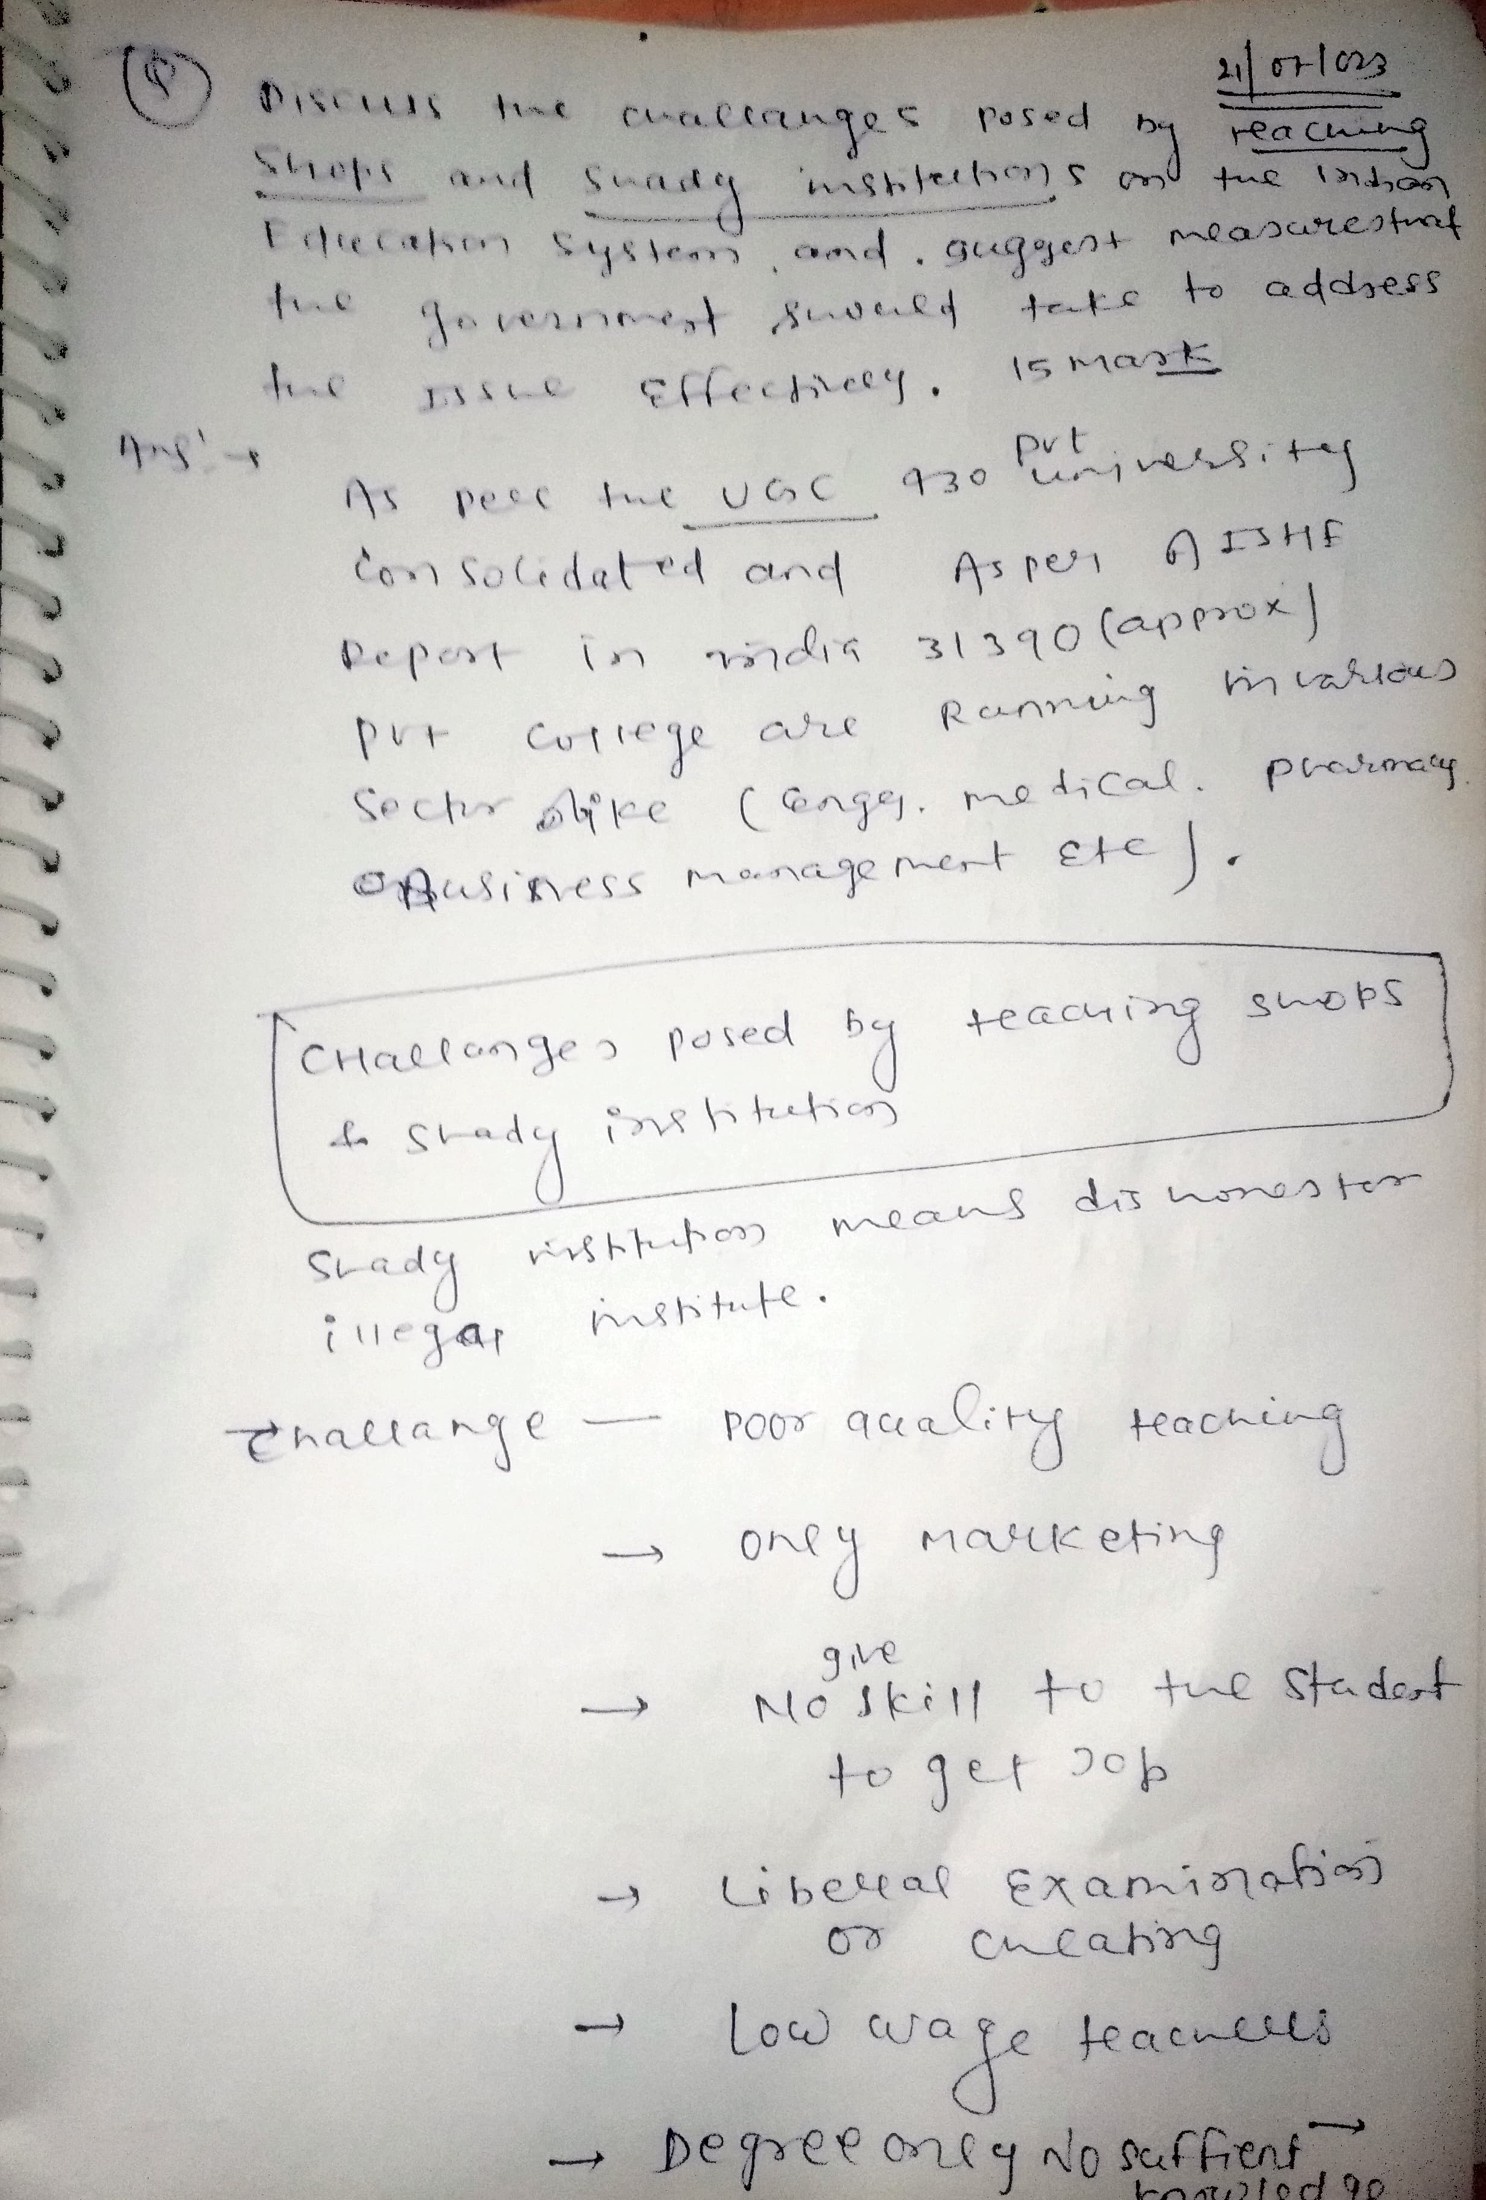 Q
21/07/023
Discuss the challanges posed by teaching
shops and shady institutions on the Indian
Education system, and suggest measures that
the government should take to address
the issue effectively. 15 mark
Ans:→
pvt
As per the UGC 430 university
consolidated and As per AISHE
Report in india 31390 (approx)
pvt college are Running in various
Sector like (engg. medical. pharmacy
Business management Etc).
CHallanges posed by teaching shops
& shady institution
Shady institution means dishonest or
illegal institute.
challange — poor quality teaching
→ only marketing
give
→ No skill to the Student
to get Job
→ Liberal Examination
or cheating
→ Low wage teachers
→ Degree only No suffient →
knowledge